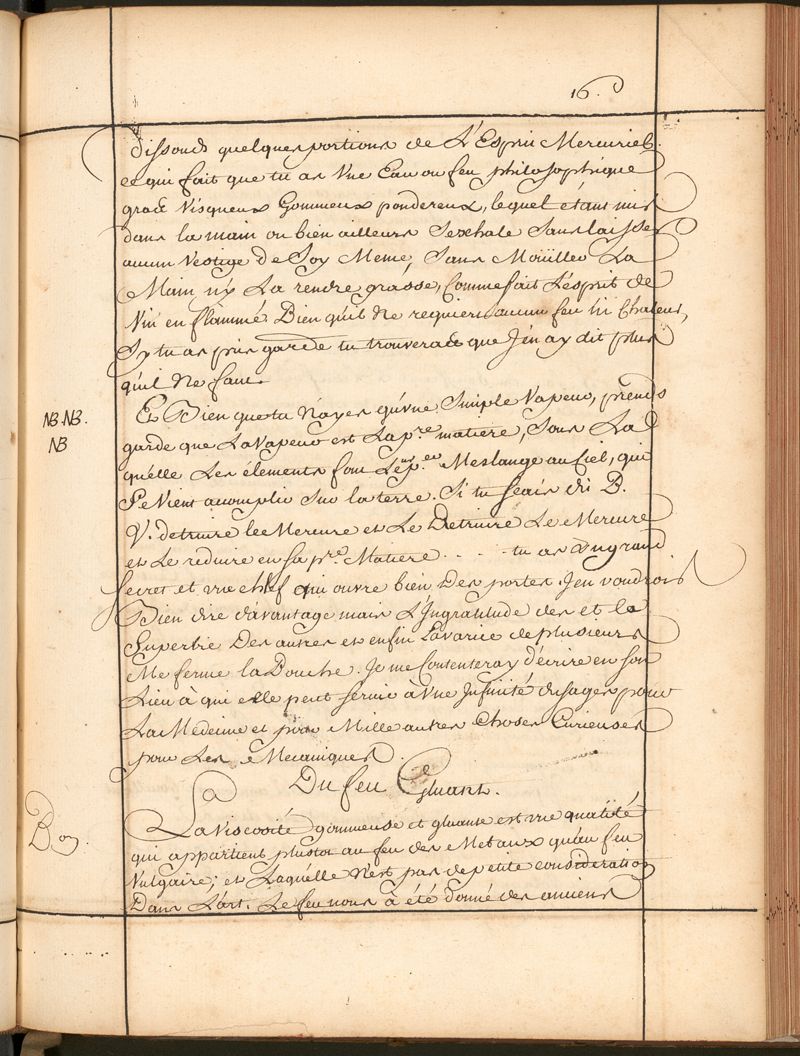 16.
dissouds quelques portions de L'Esprit Mercuriel.
ce qui fait que tu as Vne Eau ou feu philosophique
gras Visqueux Gommeux pondereux, lequel étant mis
dans la main ou bien ailleurs S'exhale Sans laisser
aucun Vestige de Soy Meme, Sans Moüiller La
Main n'y La rendre grasse, Comme fait L'esprit de
Vin en flammé Bien qu'il Ne requiere aucun feu ni Chaleur,
Sy tu as pris garde tu trouveras que J'en ay dit plus
qu'il Ne faut.
Et Bien que tu N'ayes qu'vne Simple Vapeur, prends
NB. NB.
garde que La Vapeur est La pre. matiere, Sous La
NB
quelle Les élements font Leurs per. Meslange au Ciel, qui
Se Vient acomplir Sur la terre. Si tu scais dis B.
V. detruire le Mercure et Le Detruire Le Mercure
et Le reduire en Sa pre. Matiere . . . . tu as Vn grand
Secret et vne clef qui ouvre bien Des portes. J'en voudrois
Bien dire d'avantage mais L'Ingratitude des et la
Superbie Des autres et enfin L'avarice de plusieurs
Me ferme la Bouche. Je me Contenteray d'écrire en son
Lieu à qui elle peut servir à Vne Infinité d'usages pour
La Medecine et pour Mille autres Choses Curieuses
pour Les Mecaniques.
Du feu Gluant.
La Viscosité gommeuse et gluante est vne qualité
qui appartient plustot au feu des Metaux qu'au feu
Vulgaire; et Laquelle N'est pas de petite consideration
Dans L'art. Le feu nous à été donné des anciens